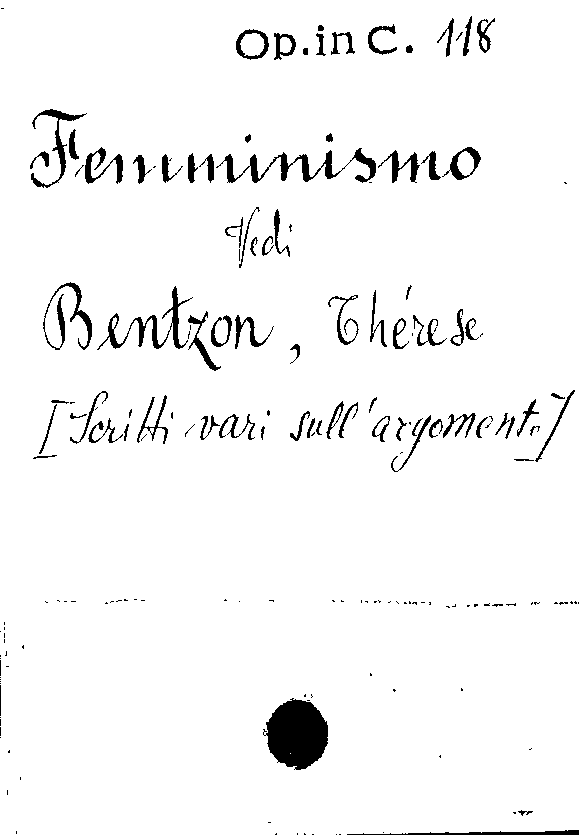 Op. in C. 118
Femminismo
Vedi
Bentzon, Thérese
[Scritti vari sull'argomento]